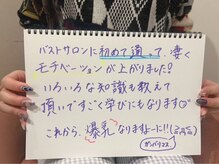 バストサロンに初めて通って、凄く
モチベーションが上がりました!
いろいろな知識も教えて
頂いてすごく学びにもなります♡
これから、爆乳になりますよーに!!
ガンバリマス